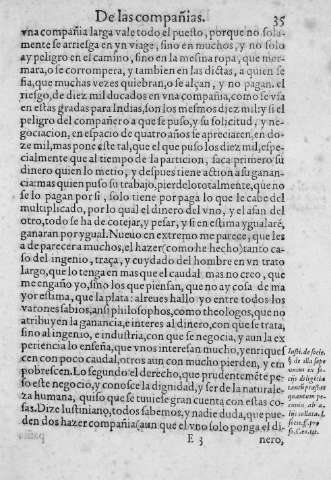 De las compañias. 35
vna compañia larga vale todo el puesto, porque no sola-
mente se arriesga en vn viage, sino en muchos, y no solo
ay peligro en el camino, sino en la mesma ropa, que mer-
mara, o se corrompera, y tambien en las dictas, a quien se
fia, que muchas vezes quiebran, o se alçan, y no pagan. el
riesgo, de diez mil ducados en vna compañia, como se vía
en estas gradas para Indias, son los mesmos diez mil: y si el
peligro del compañero a que se puso, y su solicitud, y ne-
gociacion, en espacio de quatro años se apreciaren, en do-
ze mil, mas pone este tal, que el que puso los diez mil, espe-
cialmente que al tiempo de la particion, saca primero su
dinero quien lo metio, y despues tiene action a su ganan-
cia: mas quien puso su trabajo, pierdelo totalmente, que no
se lo pagan por si, solo tiene por paga lo que le cabe del
multiplicado, por lo qual el dinero del vno, y el afan del
otro, todo se ha de cotejar, y pesar, y si en estima ygualarẽ,
ganaran por ygual. Nueuo en extremo me parece, que les
a de parecer a muchos, el hazer (como he hecho) tanto ca-
so del ingenio, traça, y cuydado del hombre en vn trato
largo, que lo tenga en mas que el caudal: mas no creo, que
me engaño yo, sino los que piensan, que no ay cosa de ma
yor estima, que la plata: al reues hallo yo entre todos los
varones sabios, ansi philosophos, como theologos, que no
atribuyen la ganancia, e interes al dinero, con que se trata,
sino al ingenio, e industria, con que se negocia, y aun la ex
periencia lo enseña, que vnos interesan mucho, y enrique
cen con poco caudal, otros aun con mucho pierden, y em
pobrescen. Lo segundo el derecho, que prudentemẽte pe-
so este negocio, y conosce la dignidad, y ser de la naturale-
za humana, quiso que se tuuiese gran cuenta con estas co-
sas. Dize Iustiniano, todos sabemos, y nadie duda, que pue-
den dos hazer compañia (aun que el vno solo ponga el di-
E 3 nero,
Insti. de socie.